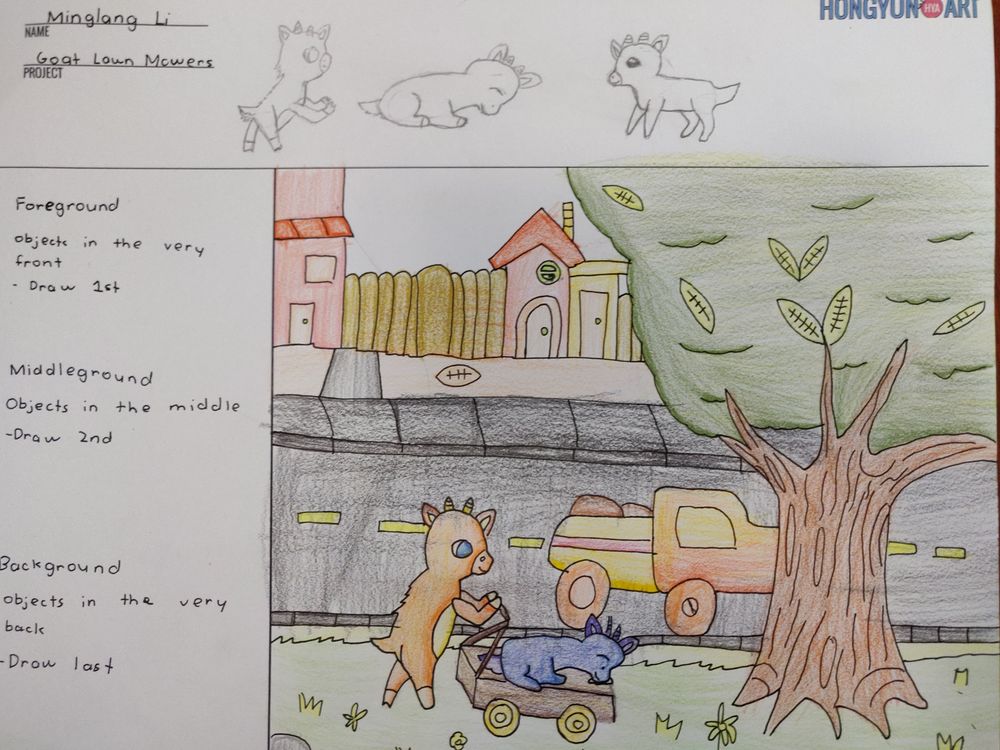 Minglang Li
NAME
Goat Lawn Mowers
PROJECT
HONGYUN HYA ART
Foreground
objects in the very
front
- Draw 1st
Middleground
Objects in the middle
-Draw 2nd
Background
objects in the very
back
-Draw last